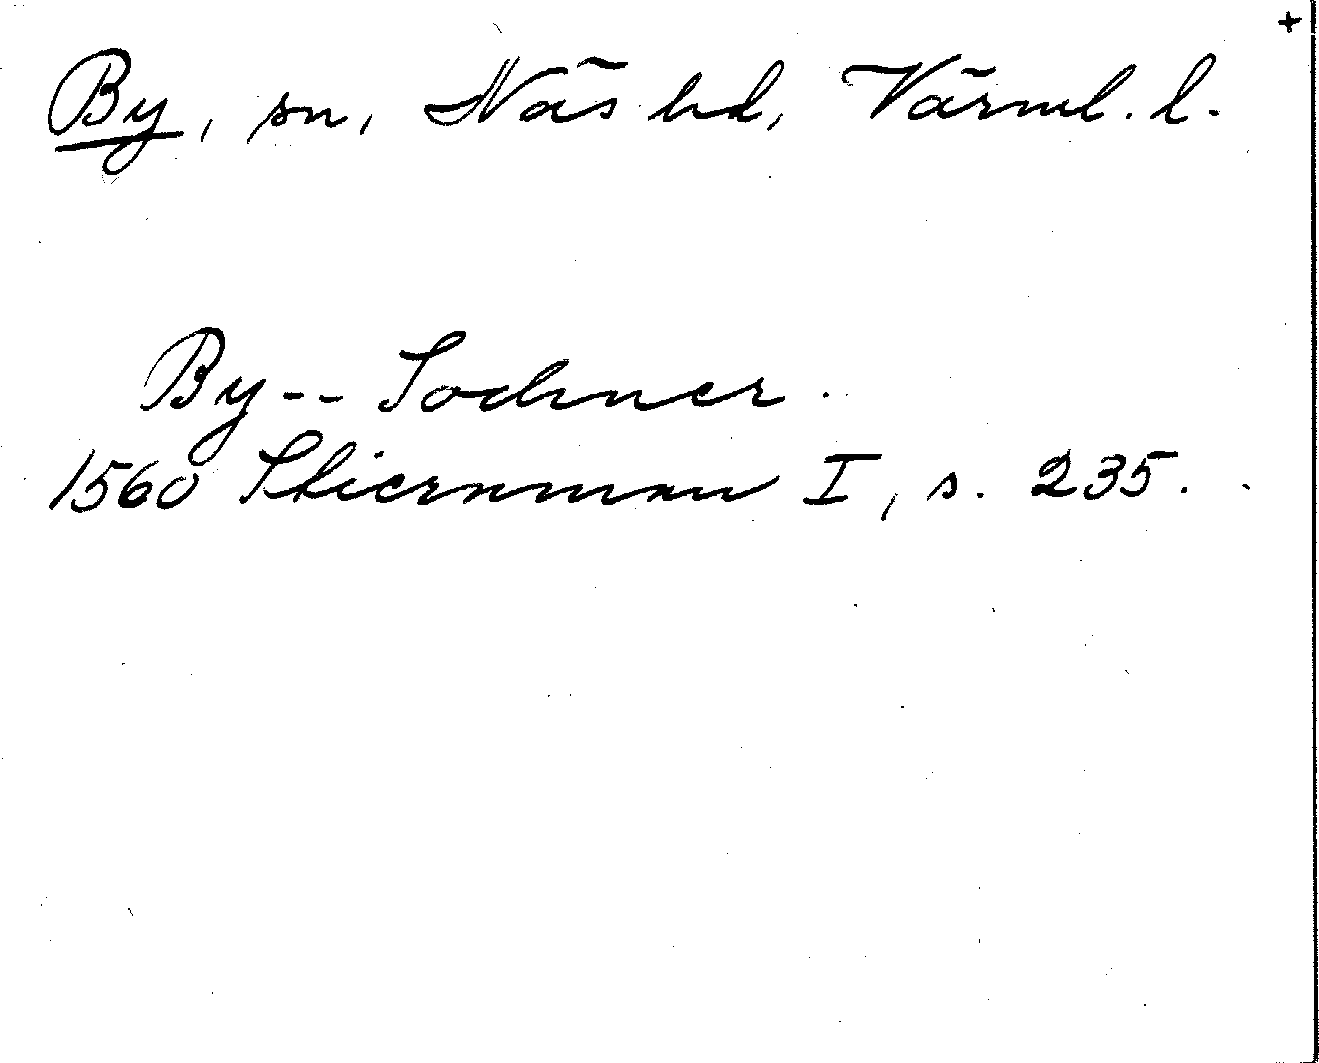 +
By, sn, Näs hd, Värml. l.
By -- Sochner.
1560 Stiernman I, s. 235.